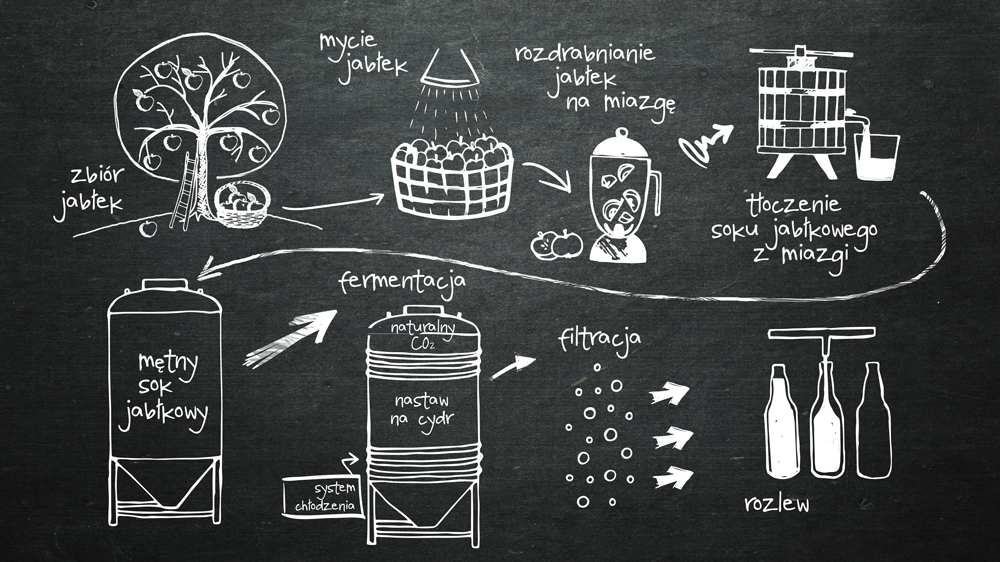 zbiór
jabłek
mycie
jabłek
rozdrabnianie
jabłek
na miazgę
tłoczenie
soku jabłkowego
z miazgi
mętny
sok
jabłkowy
fermentacja
naturalny
CO₂
nastaw
na cydr
system
chłodzenia
filtracja
rozlew